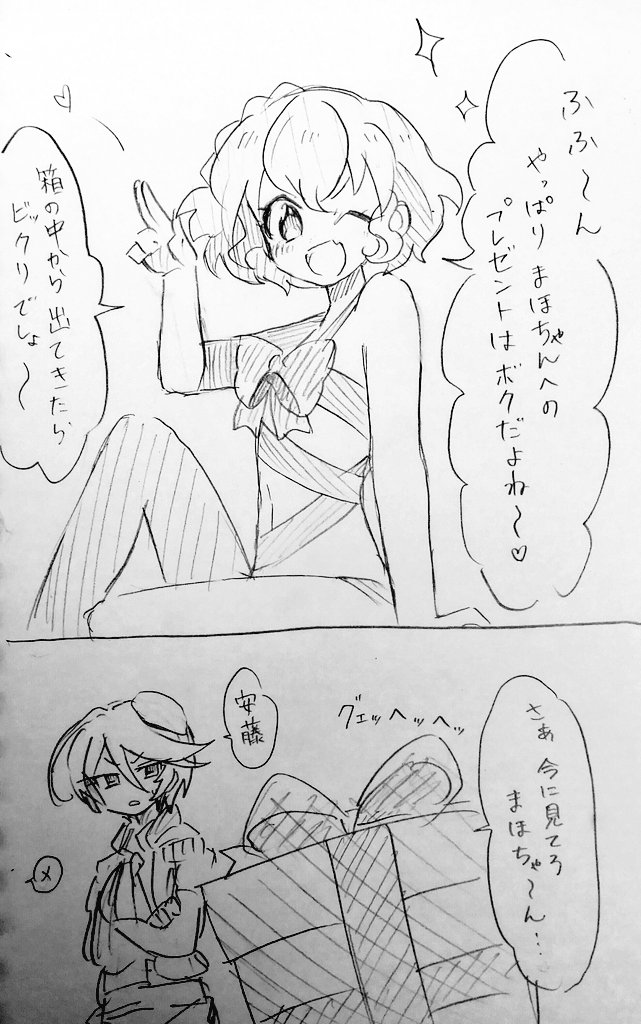 ふふ〜ん
やっぱり まほちゃんへの
プレゼントは ボクだよね〜♡
箱の中から 出てきたら
ビックリでしょ〜
さぁ 今に見てろ
まほちゃ〜ん…
グェッヘッヘッ
安藤